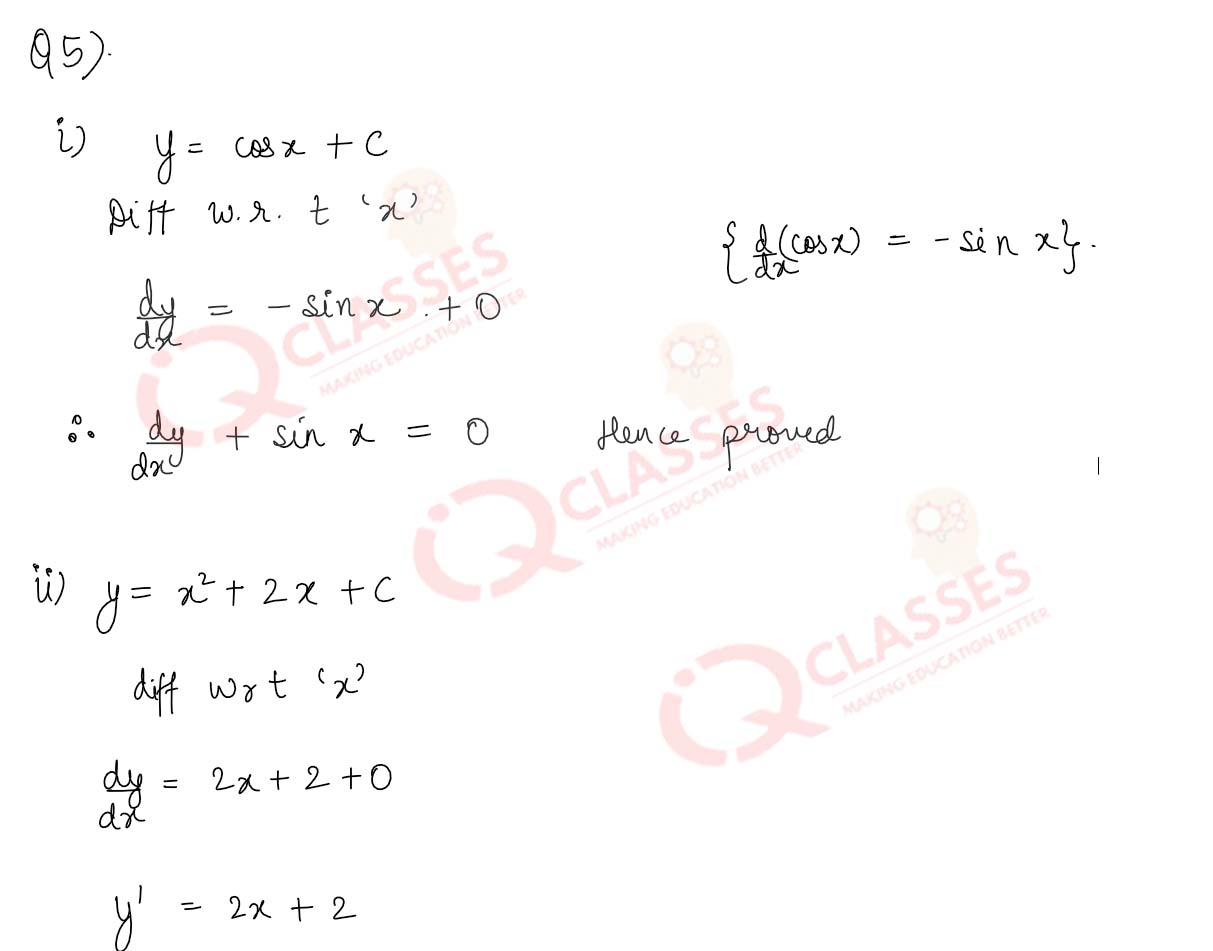 Q5).
i) y = cos x + C
Diff w.r.t 'x'
{d/dx (cos x) = - sin x}.
dy/dx = - sin x . + 0
∴ dy/dx + sin x = 0 Hence proved
ii) y = x² + 2x + C
diff wrt 'x'
dy/dx = 2x + 2 + 0
y' = 2x + 2
iQ CLASSES
MAKING EDUCATION BETTER
iQ CLASSES
MAKING EDUCATION BETTER
iQ CLASSES
MAKING EDUCATION BETTER